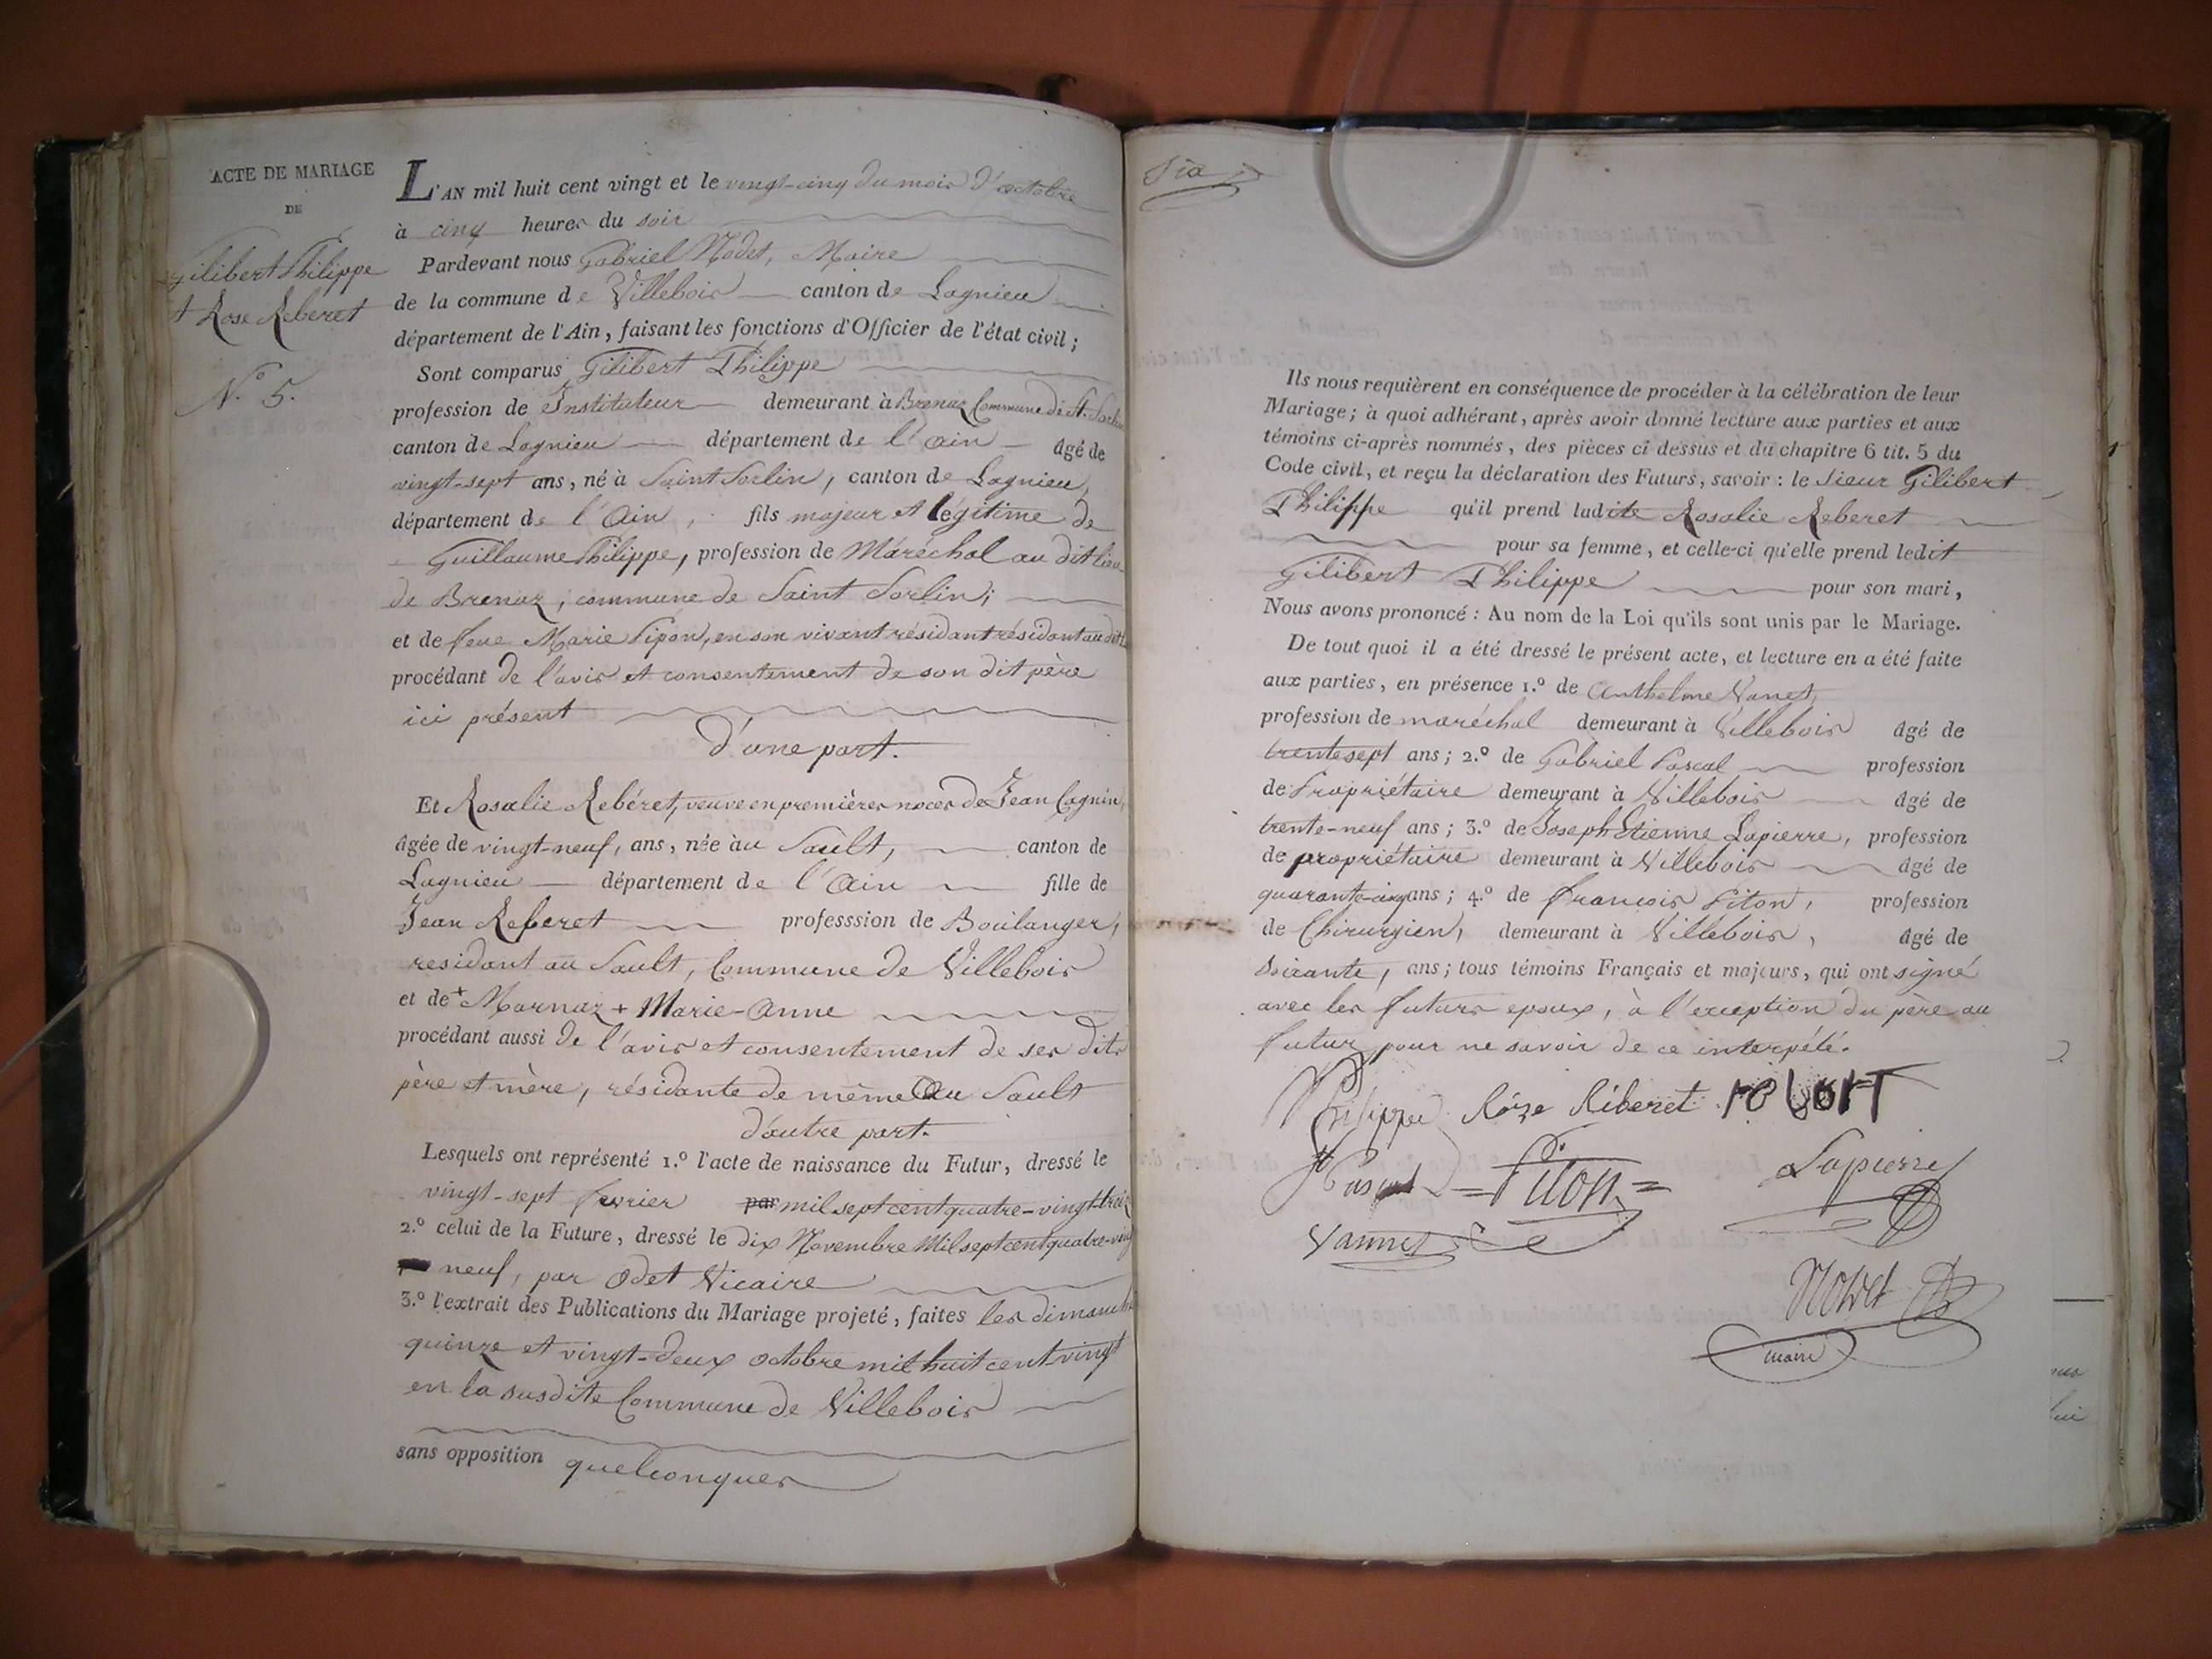 ACTE DE MARIAGE
DE
Gilibert Philippe
et Rose Reberet
N.º 5.
L'AN mil huit cent vingt et le vingt-cinq du mois d'octobre
à cinq heures du soir
Pardevant nous Gabriel Nodet, Maire
de la commune de Villebois canton de Lagnieu
département de l'Ain, faisant les fonctions d'Officier de l'état civil ;
Sont comparus Gilibert Philippe
profession de Instituteur demeurant à Brenaz Commune de St. Sorlin
canton de Lagnieu département de l'ain âgé de
vingt-sept ans, né à Saint Sorlin, canton de Lagnieu,
département de l'Ain, fils majeur et légitime de
Guillaume Philippe, profession de Maréchal au dit lieu
de Brenaz, commune de Saint Sorlin ;
et de feue Marie Pipon, en son vivant résidant résidant au dit
procédant de l'avis et consentement de son dit père
ici présent
d'une part.
Et Rosalie Rebéret, veuve en premières noces de Jean Cagnin,
âgée de vingt-neuf, ans, née au Sault, canton de
Lagnieu département de l'Ain fille de
Jean Reberet professsion de Boulanger,
residant au Sault, Commune de Villebois
et de + Marnaz + Marie-Anne
procédant aussi de l'avis et consentement de ses dits
père et mère, résidante de même au Sault
d'autre part.
Lesquels ont représenté 1.º l'acte de naissance du Futur, dressé le
vingt-sept fevrier par mil sept cent quatre-vingt-treiz
2.º celui de la Future, dressé le dix Novembre Mil sept cent quatre-ving
neuf, par Odet Vicaire
3.º l'extrait des Publications du Mariage projeté, faites les dimanche
quinze et vingt-deux octobre mil huit cent vingt
en la susdite Commune de Villebois
sans opposition quelconques
Six
Ils nous requièrent en conséquence de procéder à la célébration de leur
Mariage ; à quoi adhérant, après avoir donné lecture aux parties et aux
témoins ci-après nommés, des pièces ci dessus et du chapitre 6 tit. 5 du
Code civil, et reçu la déclaration des Futurs, savoir : le Sieur Gilibert
Philippe qu'il prend ladite Rosalie Reberet
pour sa femme, et celle-ci qu'elle prend ledit
Gilibert Philippe pour son mari,
Nous avons prononcé : Au nom de la Loi qu'ils sont unis par le Mariage.
De tout quoi il a été dressé le présent acte, et lecture en a été faite
aux parties, en présence 1.º de Anthelme Vanet,
profession de maréchal demeurant à Villebois âgé de
trente sept ans ; 2.º de Gabriel Pascal profession
de Propriétaire demeurant à Villebois âgé de
trente-neuf ans ; 3.º de Joseph Etienne Lapierre, profession
de propriétaire demeurant à Villebois âgé de
quarante-cinq ans ; 4.º de francois Piton, profession
de Chirurgien, demeurant à Villebois, âgé de
Soixante, ans ; tous témoins Français et majeurs, qui ont signé
avec les futurs epoux, à l'exception du père au
futur, pour ne savoir de ce interpélé.
Philippe Róze Riberet
Pascal = Piton = Lapierre
Vannet
Nodet
maire